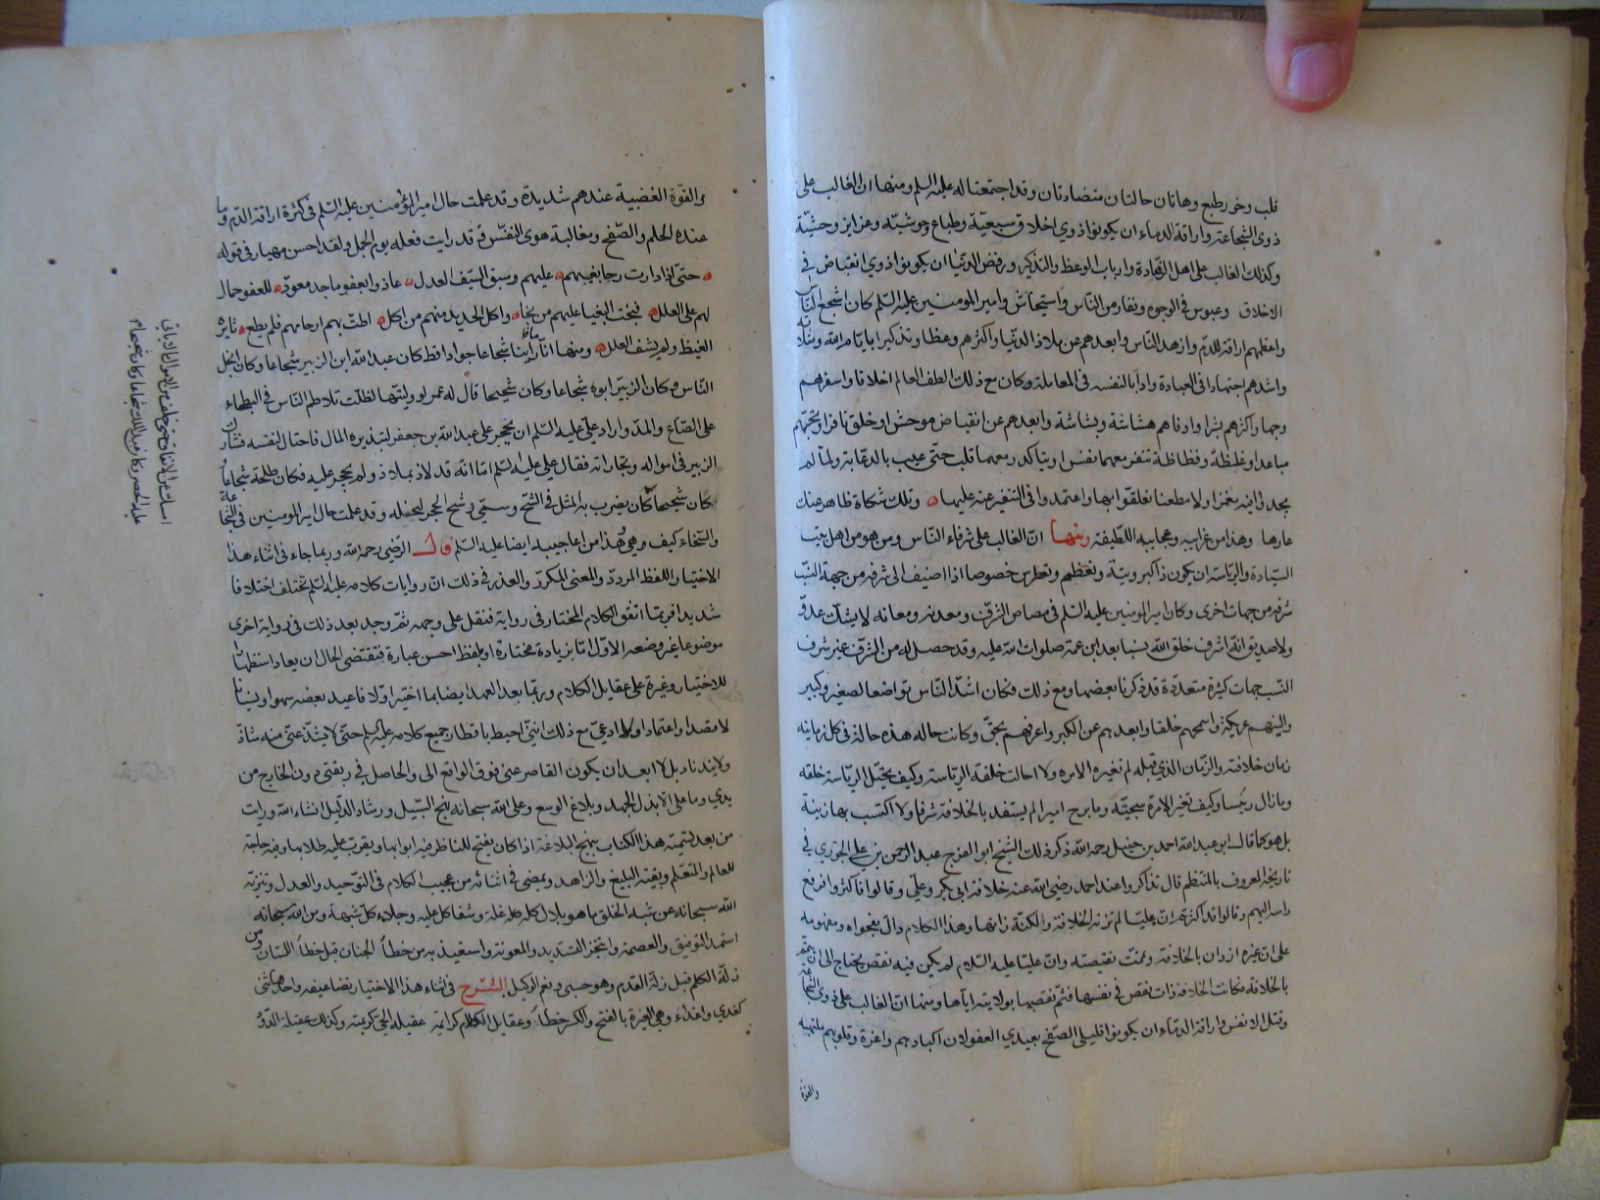 قلب وخور طبع وهاتان حالتان متضادتان وقد اجتمعتا له عليه السلم ومنها ان الغالب على
ذوي الشجاعة واراقة الدماء ان يكونوا ذوي اخلاق سبعيّة وطباع حوشيّة وغرايز وحشيّة
وكذلك الغالب على اهل الزهادة وارباب الوعظ والتذكير ورفض الدنيا ان يكونوا ذوي انقباض في
الاخلاق وعبوس في الوجوه ونفار من الناس واستيحاش وامير المومنين عليه السلم كان اشجع الناس
واعظمهم اراقة للدم وازهد الناس وابعدهم عن ملاذ الدنيا واكثرهم وعظا وتذكيرا بايام الله ومثلاته
واشدهم اجتهادا في العبادة وادابا لنفسه في المعاملة وكان مع ذلك الطف العالم اخلاقا واسفرهم
وجها واكثرهم بشرا واوفاهم هشاشة وبشاشة وابعدهم عن انقباض موحش او خلق نافر او تجهم
مباعد او غلظة وفظاظة تنفر معهما نفس او يتكدر معهما قلب حتى عيب بالدعابة ولما لم
يجدوا فيه مغمزا ولا مطعنا تعلقوا بها واعتمدوا في التنفير عنه عليها وتلك شكاة ظاهر عنك
عارها وهذا من غرايبه وعجايبه اللطيفة ومنها ان الغالب على شرفاء الناس ومن هو من اهل بيت
السيادة والرياسة ان يكون ذا كبر وتيه وتعظم وتغطرس خصوصا اذا اضيف الى شرفه من جهة النسب
شرفه من جهات اخرى وكان امير المومنين عليه السلم في مصاص الشرف ومعدنه ومعانه لا يشك عدو
ولا صديق انه اشرف خلق الله نسبا بعد ابن عمه صلوات الله عليه وقد حصل له من الشرف غير شرف
النسب جهات كثيرة متعددة قد ذكرنا بعضها ومع ذلك فكان اشد الناس تواضعا لصغير وكبير
والينهم عريكة واسمحهم خلقا وابعدهم عن الكبر واعرفهم بحق وكانت حاله هذه حاله في كل زمانيه
زمان خلافته والزمان الذي قبله لم تغيره الامرة ولا احالت خلقه الرياسة وكيف تحيل الرياسة خلقه
وما زال رئيسا وكيف تغير الامرة سجيته وما برح اميرا لم يستفد بالخلافة شرفا ولا اكتسب بها زينة
بل هو كما قال ابو عبد الله احمد بن حنبل رحمه الله ذكر ذلك الشيخ ابو الفرج عبد الرحمن بن علي الجوزي في
تاريخه المعروف بالمنتظم قال تذاكروا عند احمد رضي الله عنه خلافة ابي بكر وعلي وقالوا فاكثروا فرفع
راسه اليهم وقال قد اكثرتم ان عليا لم تزنه الخلافة ولكنه زانها وهذا الكلام دال بفحواه ومفهومه
على ان غيره ازدان بالخلافة وتممت نقيصته وان عليا عليه السلام لم يكن فيه نقص يحتاج الى ان يتمم
بالخلافة فكانت الخلافة ذات نقص في نفسها فتم نقصها بولايته اياها ومنها ان الغالب على ذوي الشجاعة
وقتل الانفس واراقة الدماء ان يكونوا قليلي الصفح بعيدي العفو لان اكبادهم واغرة وقلوبهم ملتهبة
والقوة
والقوة الغضبية عندهم شديدة وقد علمت حال امير المؤمنين عليه السلم في كثرة اراقة الدم وما
عنده الحلم والصفح ومغالبة هوى النفس وقد رايت فعله يوم الجمل ولقد احسن مهيار في قوله
حتى اذا دارت رحا بغيهم عليهم وسبق السيف العدل عاذوا بعفو ماجد معوّد للعفو حمال
لهم على العلل فنجت البقيا عليهم من نجا واكل الحديد منهم من اكل اطت بهم ارحامهم فلم يطع ثائرة
الغيظ ولم يشف الغلل ومنها انا ما راينا شجاعا جوادا قط كان عبد الله ابن الزبير شجاعا وكان ابخل
الناس وكان الزبير ابوه شجاعا وكان شحيحا قال له عمر لو وليتها لظلت تلاطم الناس في البطحاء
على الصاع والمد واراد علي عليه السلم ان يحجر على عبد الله بن جعفر لتبذيره المال فاحتال لنفسه فشارك
الزبير في امواله وتجاراته فقال علي عليه السلم اما انه قد لاذ بملاذ ولم يحجر عليه فكان طلحة شجاعا
كان شحيحا كان يضرب به المثل في الشح وسمي رشح الحجر لبخله وقد علمت حال امير المومنين في الشجاعة
والسخاء كيف هي وهذا من اعاجيبه ايضا عليه السلم قال الرضي رحمه الله وربما جاء في اثناء هذا
الاختيار اللفظ المردد والمعنى المكرر والعذر في ذلك ان روايات كلامه عليه السلم تختلف اختلافا
شديدا فربما اتفق الكلام المختار في رواية فنقل على وجهه ثم وجد بعد ذلك في رواية اخرى
موضوعا غير وضعه الاول اما بزيادة مختارة او بلفظ احسن عبارة فتقتضي الحال ان يعاد استظهارا
للاختيار وغيرة على عقايل الكلام وربما بعد العهد ايضا بما اختير اولا فاعيد بعضه سهوا ونسيانا
لا قصدا واعتمادا ولا ادعي مع ذلك انني احيط باقطار جميع كلامه عليه السلم حتى لا يشذ عني منه شاذ
ولا يند ناد بل لا ابعد ان يكون القاصر عني فوق الواقع الي والحاصل في ربقتي دون الخارج من
يدي وما علي الا بذل الجهد وبلاغ الوسع وعلى الله سبحانه نهج السبيل ورشاد الدليل انشاء الله ورايت
من بعد تسمية هذا الكتاب بنهج البلاغة اذ كان يفتح للناظر فيه ابوابها ويقرب عليه طلابها وفيه حاجة
للعالم والمتعلم وبغية البليغ والزاهد ويمضي في اثنائه من عجيب الكلام في التوحيد والعدل وتنزيه
الله سبحانه عن شبه الخلق ما هو بلال كل غلة وشفا كل علة وجلاء كل شبهة ومن الله سبحانه
استمد التوفيق والعصمة واتنجز التسديد والمعونة واستعيذ به من خطأ الجنان قبل خطأ اللسان ومن
زلة الكلم قبل زلة القدم وهو حسبي ونعم الوكيل الشرح في اثناء هذا الاختيار تضاعيفه واحدها ثنى
كعذي واعذاء وهي الغيرة بالفتح والكسر خطأ وعقايل الكلام كرايمه عقيله الحي كريمته وكذلك عقيلة الذود